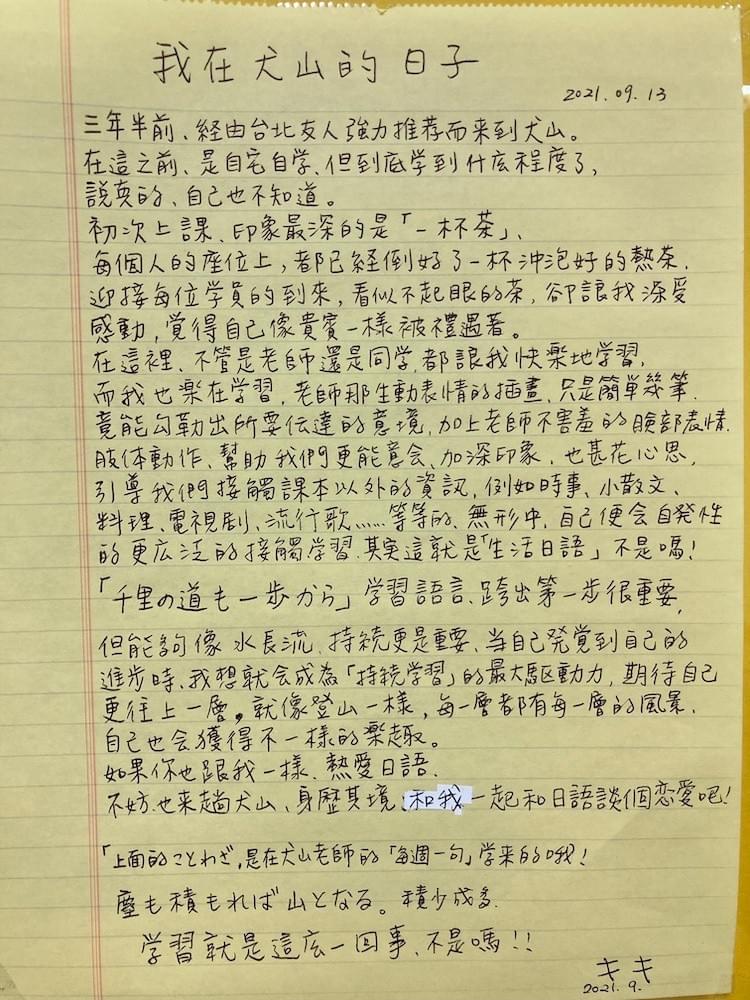 我在犬山的日子
2021.09.13
三年半前、経由台北友人強力推荐而来到犬山。
在這之前、是自宅自学、但到底学到什庅程度了,
說真的、自己也不知道。
初次上課、印象最深的是「一杯茶」、
每個人的座位上,都已経倒好了一杯沖泡好的熱茶.
迎接每位学員的到來,看似不起眼的茶,卻讓我深受
感動,覚得自己像貴賓一樣被禮遇著。
在這裡、不管是老師還是同学,都讓我快楽地学習,
而我也楽在学習,老師那生動表情的插畫、只是簡單幾筆.
竟能勾勒出所要伝達的意境,加上老師不害羞的臉部表情.
肢体動作、幫助我們更能意会、加深印象,也甚花心思,
引導我們接觸課本以外的資訊,例如時事、小散文、
料理、電視劇、流行歌……等等的、無形中,自己便会自発性
的更広泛的接觸学習.其実這就是「生活日語」不是嗎!
「千里の道も一歩から」学習語言、跨出第一步很重要,
但能夠像水長流、持続更是重要、当自己発覚到自己的
進步時、我想就会成為「持続学習」的最大駆動力,期待自己
更往上一層。就像登山一樣,每一層都有每一層的風景.
自己也会獲得不一樣的楽趣。
如果你也跟我一樣、熱愛日語.
不妨也来趟犬山、身歷其境、和我一起和日語談個恋愛吧!
「上面的ことわざ,是在犬山老師的「每週一句」学来的哦!
塵も積もれば山となる。積少成多.
学習就是這庅一回事、不是嗎!!
キキ
2021.9.